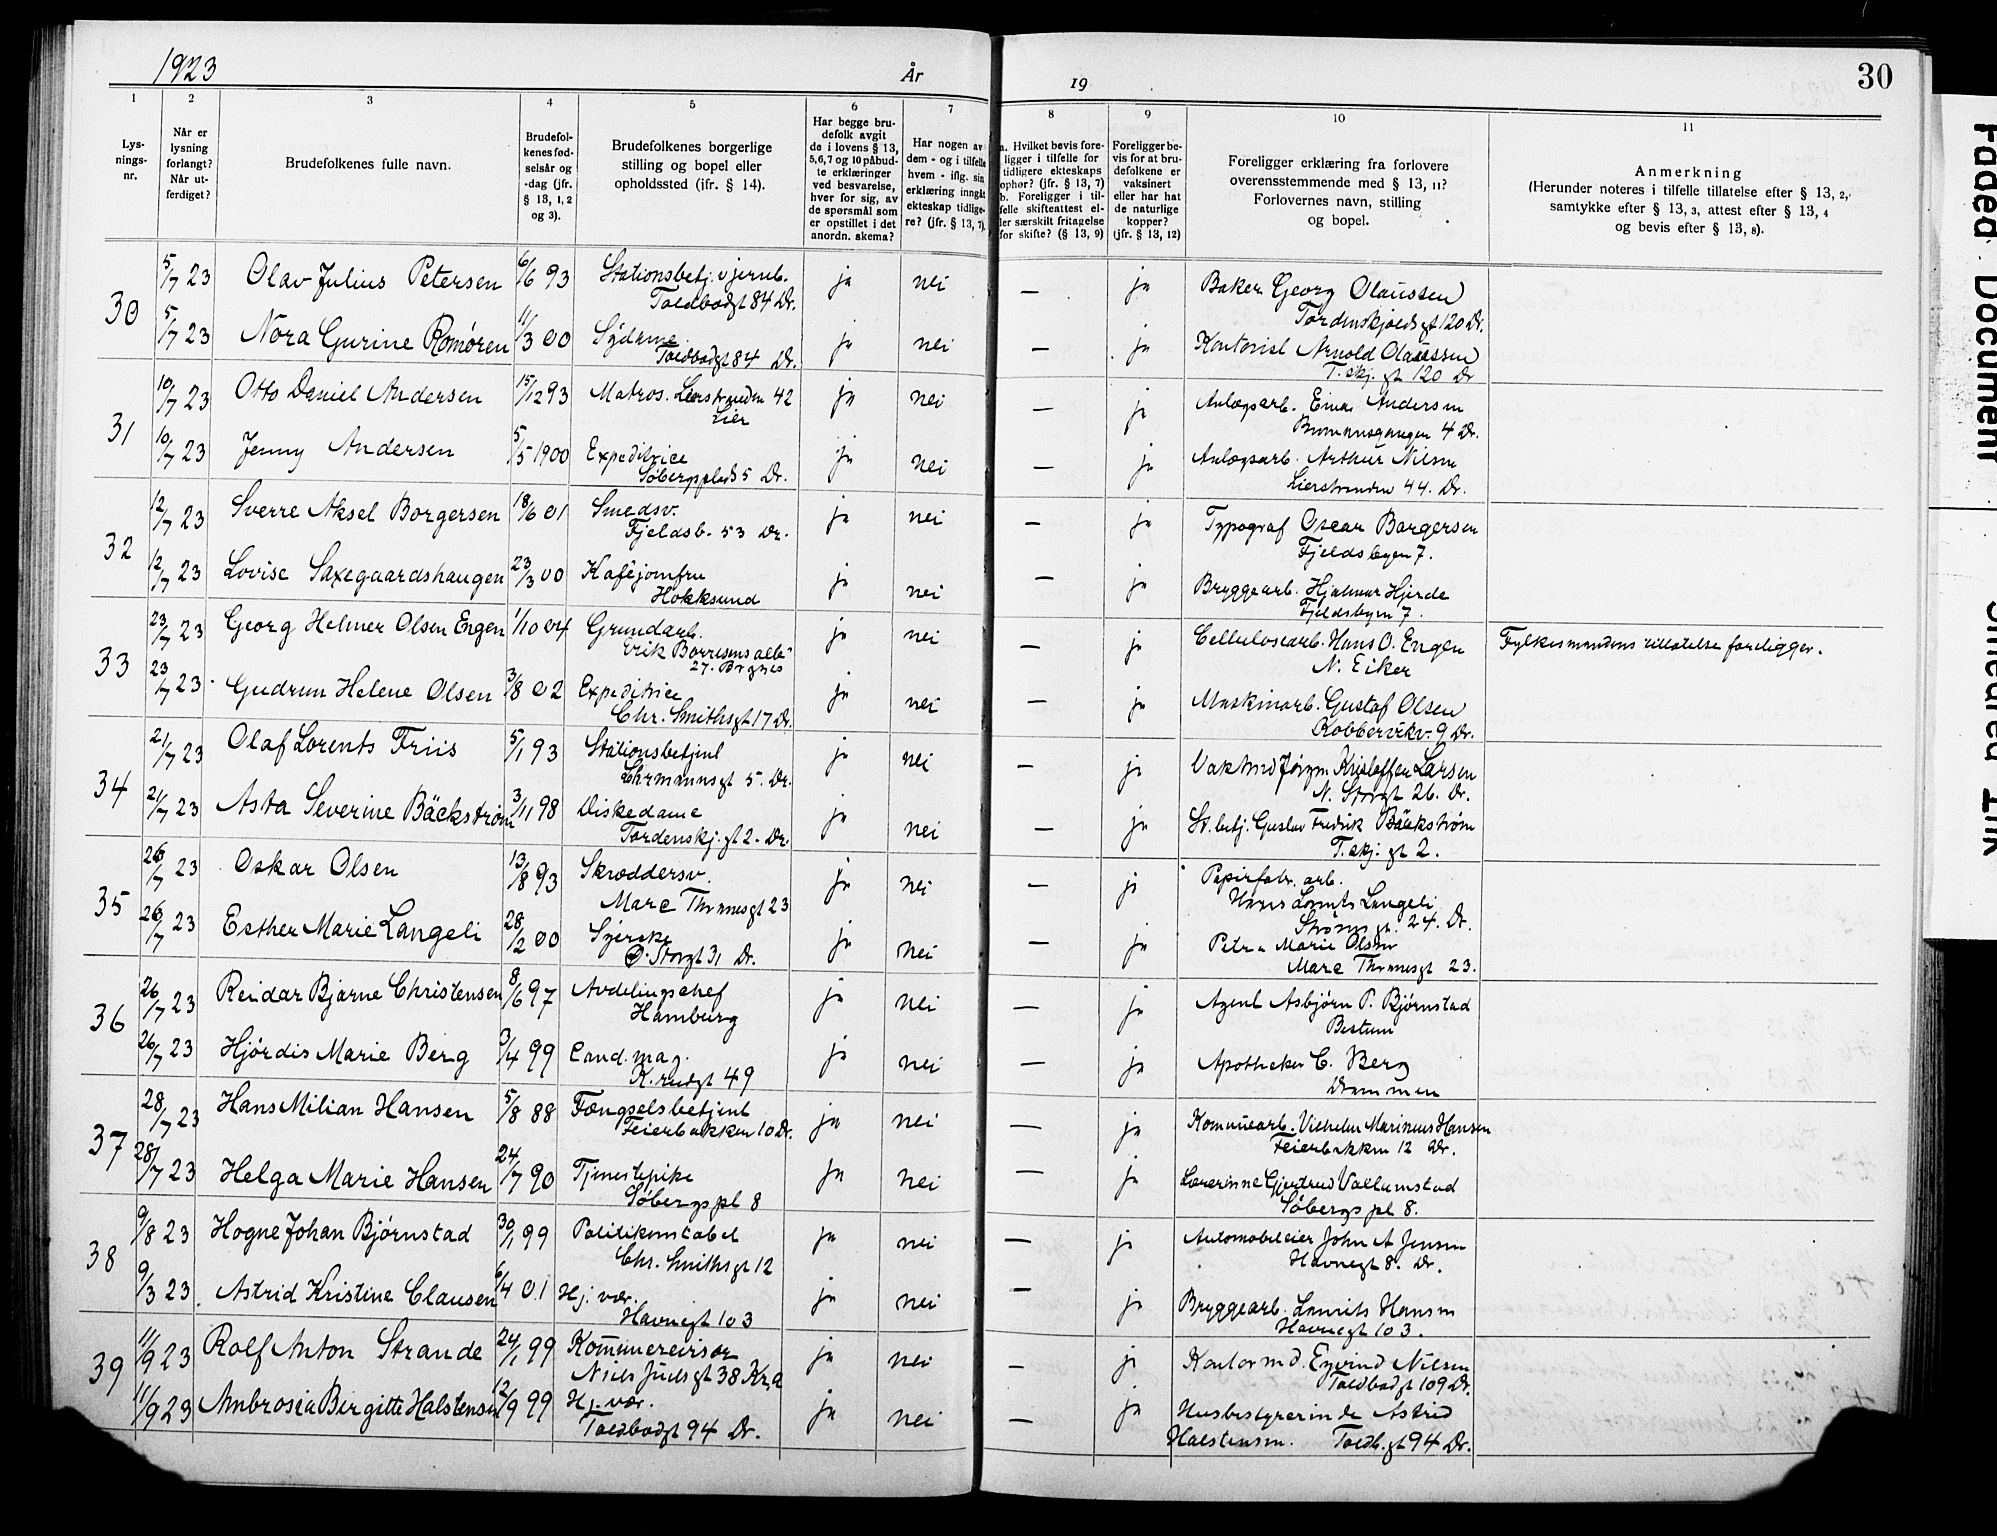 1923
År
19
30
1 2 3 4 5 6 7 8 9 10 11
Lys-
nings-
nr.
Når er
lysning
forlangt?
Når ut-
ferdiget?
Brudefolkenes fulle navn.
Brudefol-
kenes fød-
selsår og
-dag (jfr.
§ 13, 1, 2
og 3).
Brudefolkenes borgerlige
stilling og bopel eller
opholdssted (jfr. § 14).
Har begge bru-
defolk avgit
de i lovens § 13,
5,6,7 og 10 påbud-
te erklæringer
ved besvarelse,
hver for sig, av
de spørsmål som
er opstillet i det
anordn. skema?
Har nogen av
dem - og i tilfelle
hvem - iflg. sin
erklæring inngåt
ekteskap tidlige-
re? (jfr. § 13, 7).
a. Hvilket bevis fore-
ligger i tilfelle for
tidligere ekteskaps
ophør? (jfr. § 13, 7)
b. Foreligger i til-
felle skifteattest el-
ler særskilt fritagelse
for skifte? (§ 13, 9)
Foreligger be-
vis for at bru-
defolkene er
vaksinert
eller har hat
de naturlige
kopper?
(jfr. § 13, 12)
Foreligger erklæring fra forlovere
overensstemmende med § 13, 11?
Forlovernes navn, stilling
og bopel.
Anmerkning
(Herunder noteres i tilfelle tillatelse efter § 13, 2,
samtykke efter § 13, 3, attest efter § 13, 4
og bevis efter § 13, 8).
30
5/7 23 Olav Julius Petersen 6/6 93 Stationsbetj. v jernb. ja nei — ja Baker Georg Olaussen
Toldbodgt 84 Dr. Tordenskjoldsgt 120 Dr.
5/7 23 Nora Gurine Romøren 11/3 00 Sydame ja nei — ja Kontorist Arnold Olaussen
Toldbodgt 84 Dr. T.skj. gt 120 Dr
31
10/7 23 Otto Daniel Andersen 15/12 93 Matros. Lierstranden 42 ja nei — ja Anlægsarb. Einar Andersen
Lier 4 Dr.
10/7 23 Jenny Andersen 5/5 1900 Expeditrice ja nei — ja Anlægsarb. Arthur Nilsen
Søbergsplads 5 Dr. Lierstranden 44. Dr.
32
12/7 23 Sverre Aksel Borgersen 18/6 01 Smedsv. ja nei — ja Typograf Oscar Borgersen
Fjeldsb. 53 Dr. Fjeldsbyen 7.
12/7 23 Lovise Saxegaardshaugen 23/3 00 Kaféjomfru ja nei — ja Bryggearb. Hjalmar Hjerde
Hokksund Fjeldsbyen 7.
33
23/7 23 Georg Helmer Olsen Engen 1/10 04 Grundarb. ja nei — ja Cellulosearb. Hans O. Engen Fylkesmandens tillatelse foreligger.
Erik Børresens alle N. Eiker
27. Brgnes
23/7 23 Gudrun Helene Olsen 3/8 02 Expeditrice ja nei — ja Maskinarb. Gustaf Olsen
Chr. Smithsgt 17 Dr. Kobbervikv. 9 Dr.
34
21/7 23 Olaf Lorents Friis 5/1 93 Stationsbetjent ja nei — ja Vaktmd Jørgen Kristoffer Larsen
5. Dr. N. Storgt 26. Dr.
21/7 23 Asta Severine Bäckstrøm 3/11 98 Diskedame ja nei — ja St. betj. Gustav Fredrik Bäckstrøm
Tordenskj. gt 2. Dr. T.skj. gt 2.
35
26/7 23 Oskar Olsen 13/8 93 Skræddersv. ja nei — ja Papirfabr. arb.
Marc Thranesgt 23 Hans Lorents Langeli
Strøms gt. 24. Dr.
26/7 23 Esther Marie Langeli 28/2 00 Syerske ja nei — ja Petra Marie Olsen
Ø. Storgt 31 Dr. Marc Thranesgt 23.
36
26/7 23 Reidar Bjarne Christensen 8/6 97 Avdelingschef ja nei — ja Agent Asbjørn P. Bjørnstad
Hamburg Bestum
26/7 23 Hjørdis Marie Berg 9/4 99 Cand. mag. ja nei — ja Apotheker C. Berg
K. rudgt 49 Drammen
37
28/7 23 Hans Milian Hansen 5/8 88 Fængselsbetjent ja nei — ja Kommunearb. Vilhelm Marinius Hansen
Feierbakken 10 Dr. Feierbakken 12 Dr.
28/7 23 Helga Marie Hansen 24/7 90 Tjenestepike ja nei — ja Lærerinne Gjertrud Vallumstad
Søbergs pl 8 Søbergs pl 8.
38
9/8 23 Hogne Johan Bjørnstad 30/1 99 Politikonstabel ja nei — ja Automobileier John A Jensen
Chr. Smithsgt 12 Havnegt 8. Dr.
9/3 23 Astrid Kristine Clausen 6/4 01 Hj. vær. ja nei — ja Bryggearb. Laurits Hansen
Havnegt 103 Havnegt 103.
39
11/9 23 Rolf Anton Strande 24/1 99 Kommunerevisor ja nei — ja Kontormd. Eyvind Nilsen
Niels Juelsgt 38 Kr,a Toldbodgt 109 Dr.
11/9 23 Ambrosia Birgitte Halstensen 12/9 99 Hj. vær. ja nei — ja Husbestyrerinde Astrid
Toldbodgt 94 Dr. Halstensen. Toldb. gt 94 Dr.
Faded Document
Smeared Ink